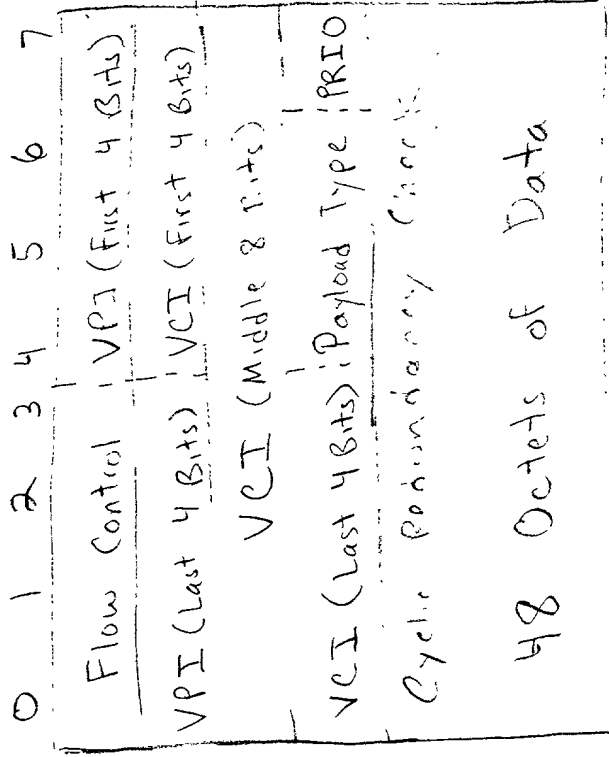 0 1 2 3 4 5 6 7
Flow Control VPI (First 4 Bits)
VPI (Last 4 Bits) VCI (First 4 Bits)
VCI (Middle 8 Bits)
VCI (Last 4 Bits) Payload Type PRIO
Cyclic
48 Octets of Data